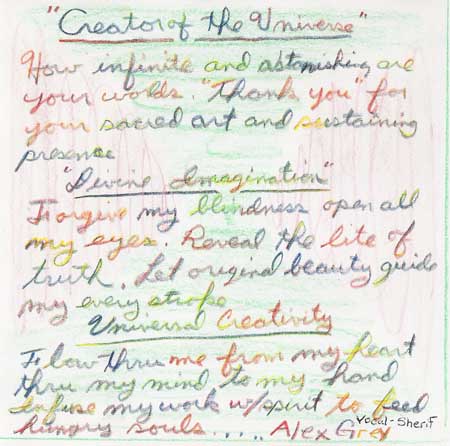 "Creator of the Universe"
How infinite and astonishing are
your worlds. "Thank you" for
your sacred art and sustaining
presence
"Divine Imagination"
Forgive my blindness open all
my eyes. Reveal the lite of
truth. Let original beauty guide
my every stroke
Universal Creativity
Flow thru me from my heart
thru my mind to my hand
Infuse my work w/spirit to feed
hungry souls..... Alex Grey
Vocal-Sherif